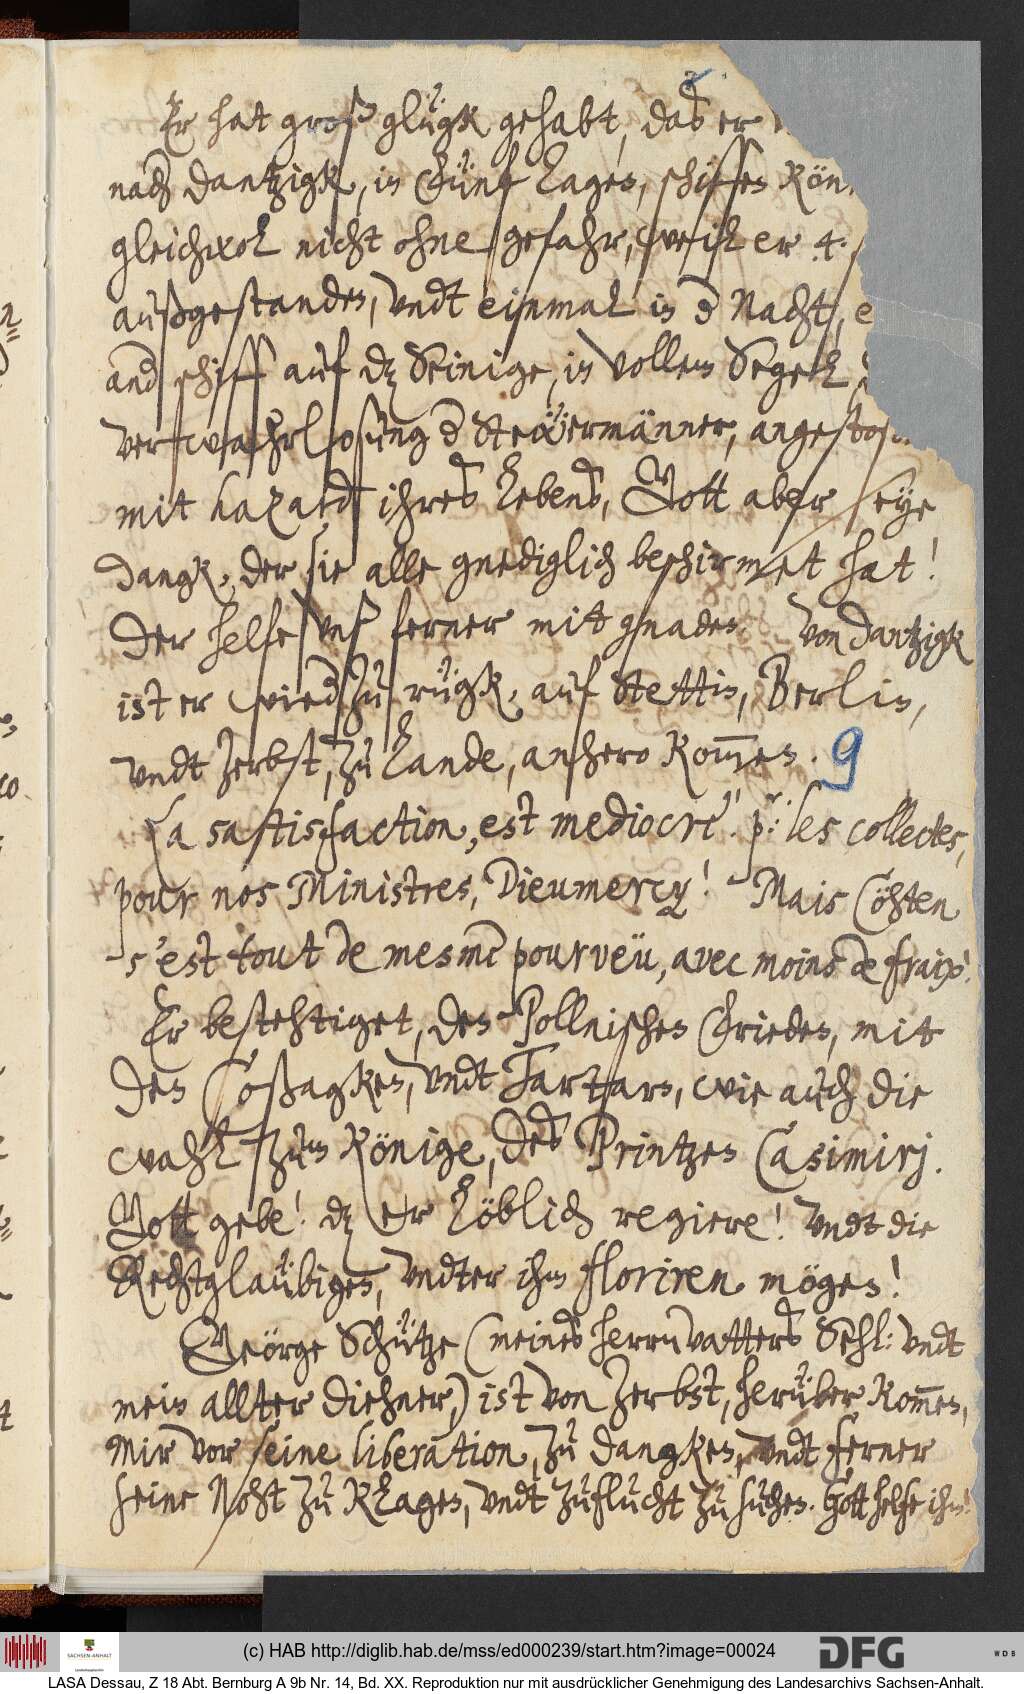 Er hat groß glügk gehabt, das er
nach Dantzigk, in Fünf Tagen, schiffen Kön
gleichwol nicht ohne gefahr, weil er 4.
außgestanden, vndt einmal in d Nacht,
and schiff auf dz Seinige, in vollem Segell,
verwahrlosung d Stewermänner, angestoß
mit hazard ihres Lebens, Gott aber seye
dangk, der sie alle gnediglich beschirmet hat!
Der helfe vnß ferner mit gnaden. Von Dantzigk
ist er wied zu rügk, auf Stettin, Berlin,
vndt Zerbst, zu Lande, anhero kom̅en. 9
La satisfaction, est mediocre! pr: les collectes,
pour nos Ministres, Dieumercy! Mais Cöhten
s'est tout de mesme pourveü, avec moins de fraix!
Er bestehtiget, den Pollnischen Frieden, mit
den Coßagken, vndt Tartarn, wie auch die
wahl zum Könige, des Printzen Casimirj.
Gott gebe! dz er Löblich regiere! vndt die
Rechtglaübigen, vndter ihm floriren mögen!
Geörge Schütze (meines herrnvatters Sehl: vndt
mein allter diehner,) ist von Zerbst, herüber kom̅en,
mir vor seine liberation, zu dangken, vndt ferner
seine Noht zu klagen, vndt zuflucht zu suchen. Gott helfe ihm!
(c) HAB http://diglib.hab.de/mss/ed000239/start.htm?image=00024
SACHSEN-ANHALT
DFG
WDB
LASA Dessau, Z 18 Abt. Bernburg A 9b Nr. 14, Bd. XX. Reproduktion nur mit ausdrücklicher Genehmigung des Landesarchivs Sachsen-Anhalt.